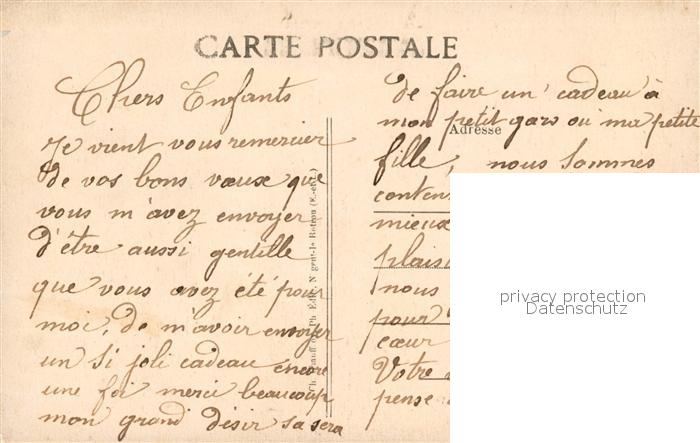 CARTE POSTALE
Chers Enfants
Je vient vous remercier
de vos bons vœux que
vous m'avez envoyer
d'être aussi gentille
que vous avez été pour
moi, de m'avoir envoyer
un si joli cadeau encore
une foi merci beaucoup
mon grand désir sa sera
de faire un cadeau à
mon petit gars ou ma petite
Adresse
fille, nous sommes
conten
mieux
plaisi
nous
pour
cœur
Votre
pense
Edit. Nogent-le-Rotrou (E.-et-L.)
privacy protection
Datenschutz